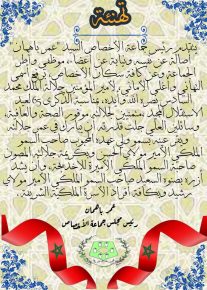 تهنئة
يتقدم رئيس جماعة الأخصاص السيد "عمر باهمان
أصالة عن نفسه ونيابة عن أعضاء، موظفي وأطر
الجماعة وعن كافة سكان الأخصاص، برفع أسمى
التهاني وأغلى الأماني لأمير المؤمنين جلالة الملك محمد
السادس نصره الله وأيده، بمناسبة الذكرى 65 لعيد
الاستقلال المجيد، متمنين لجلالته موفور الصحة والعافية،
وسائلين العلي جلت قدرته أن يبارك في عمر جلالته
ويقر عينه بسمو ولي عهده المحبوب صاحب السمو
الملكي الأمير مولاي الحسن وبكريمة جلالته المصون
صاحبة السمو الملكي الأميرة للا خديجة، وأن يشد
أزره بصنوه السعيد صاحب السمو الملكي الأمير مولاي
رشيد وبكافة أفراد الأسرة الملكية الشريفة.
عمر باهمان
رئيس مجلس جماعة الأخصاص